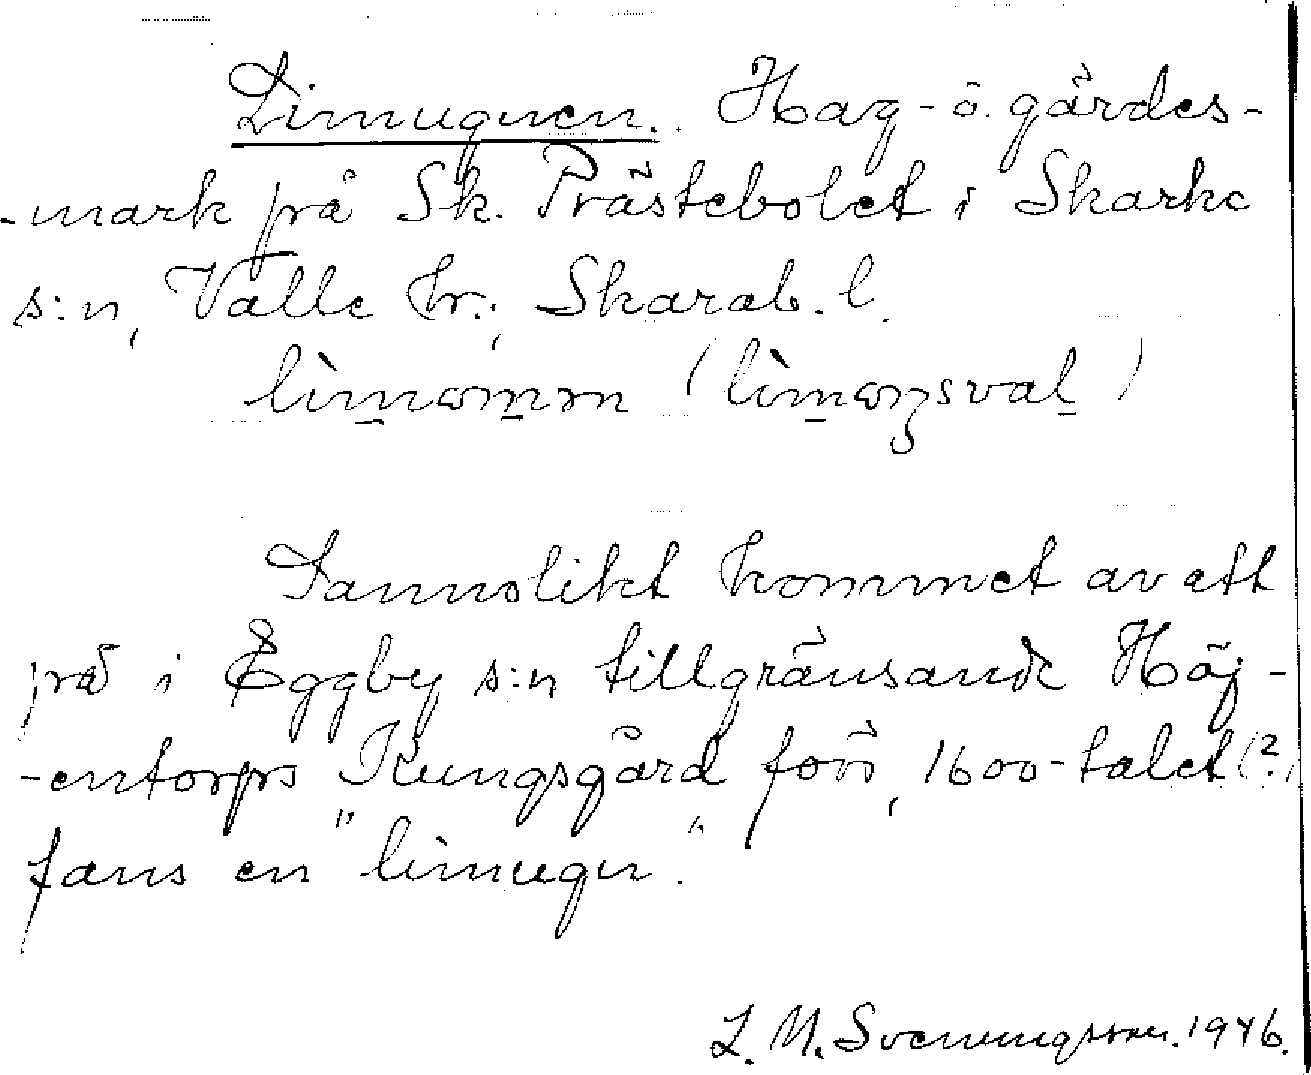 Limugnen. Hag- o. gärdes-
-mark på Sk. Prästebolet i Skarke
s:n, Valle hr., Skarab. l.
Sannolikt kommet av att
på i Eggby s:n tillgränsande Höj-
-entorps Kungsgård förr, 1600-talet (?)
fans en "limugn".
L. M. Svenungsson. 1946.